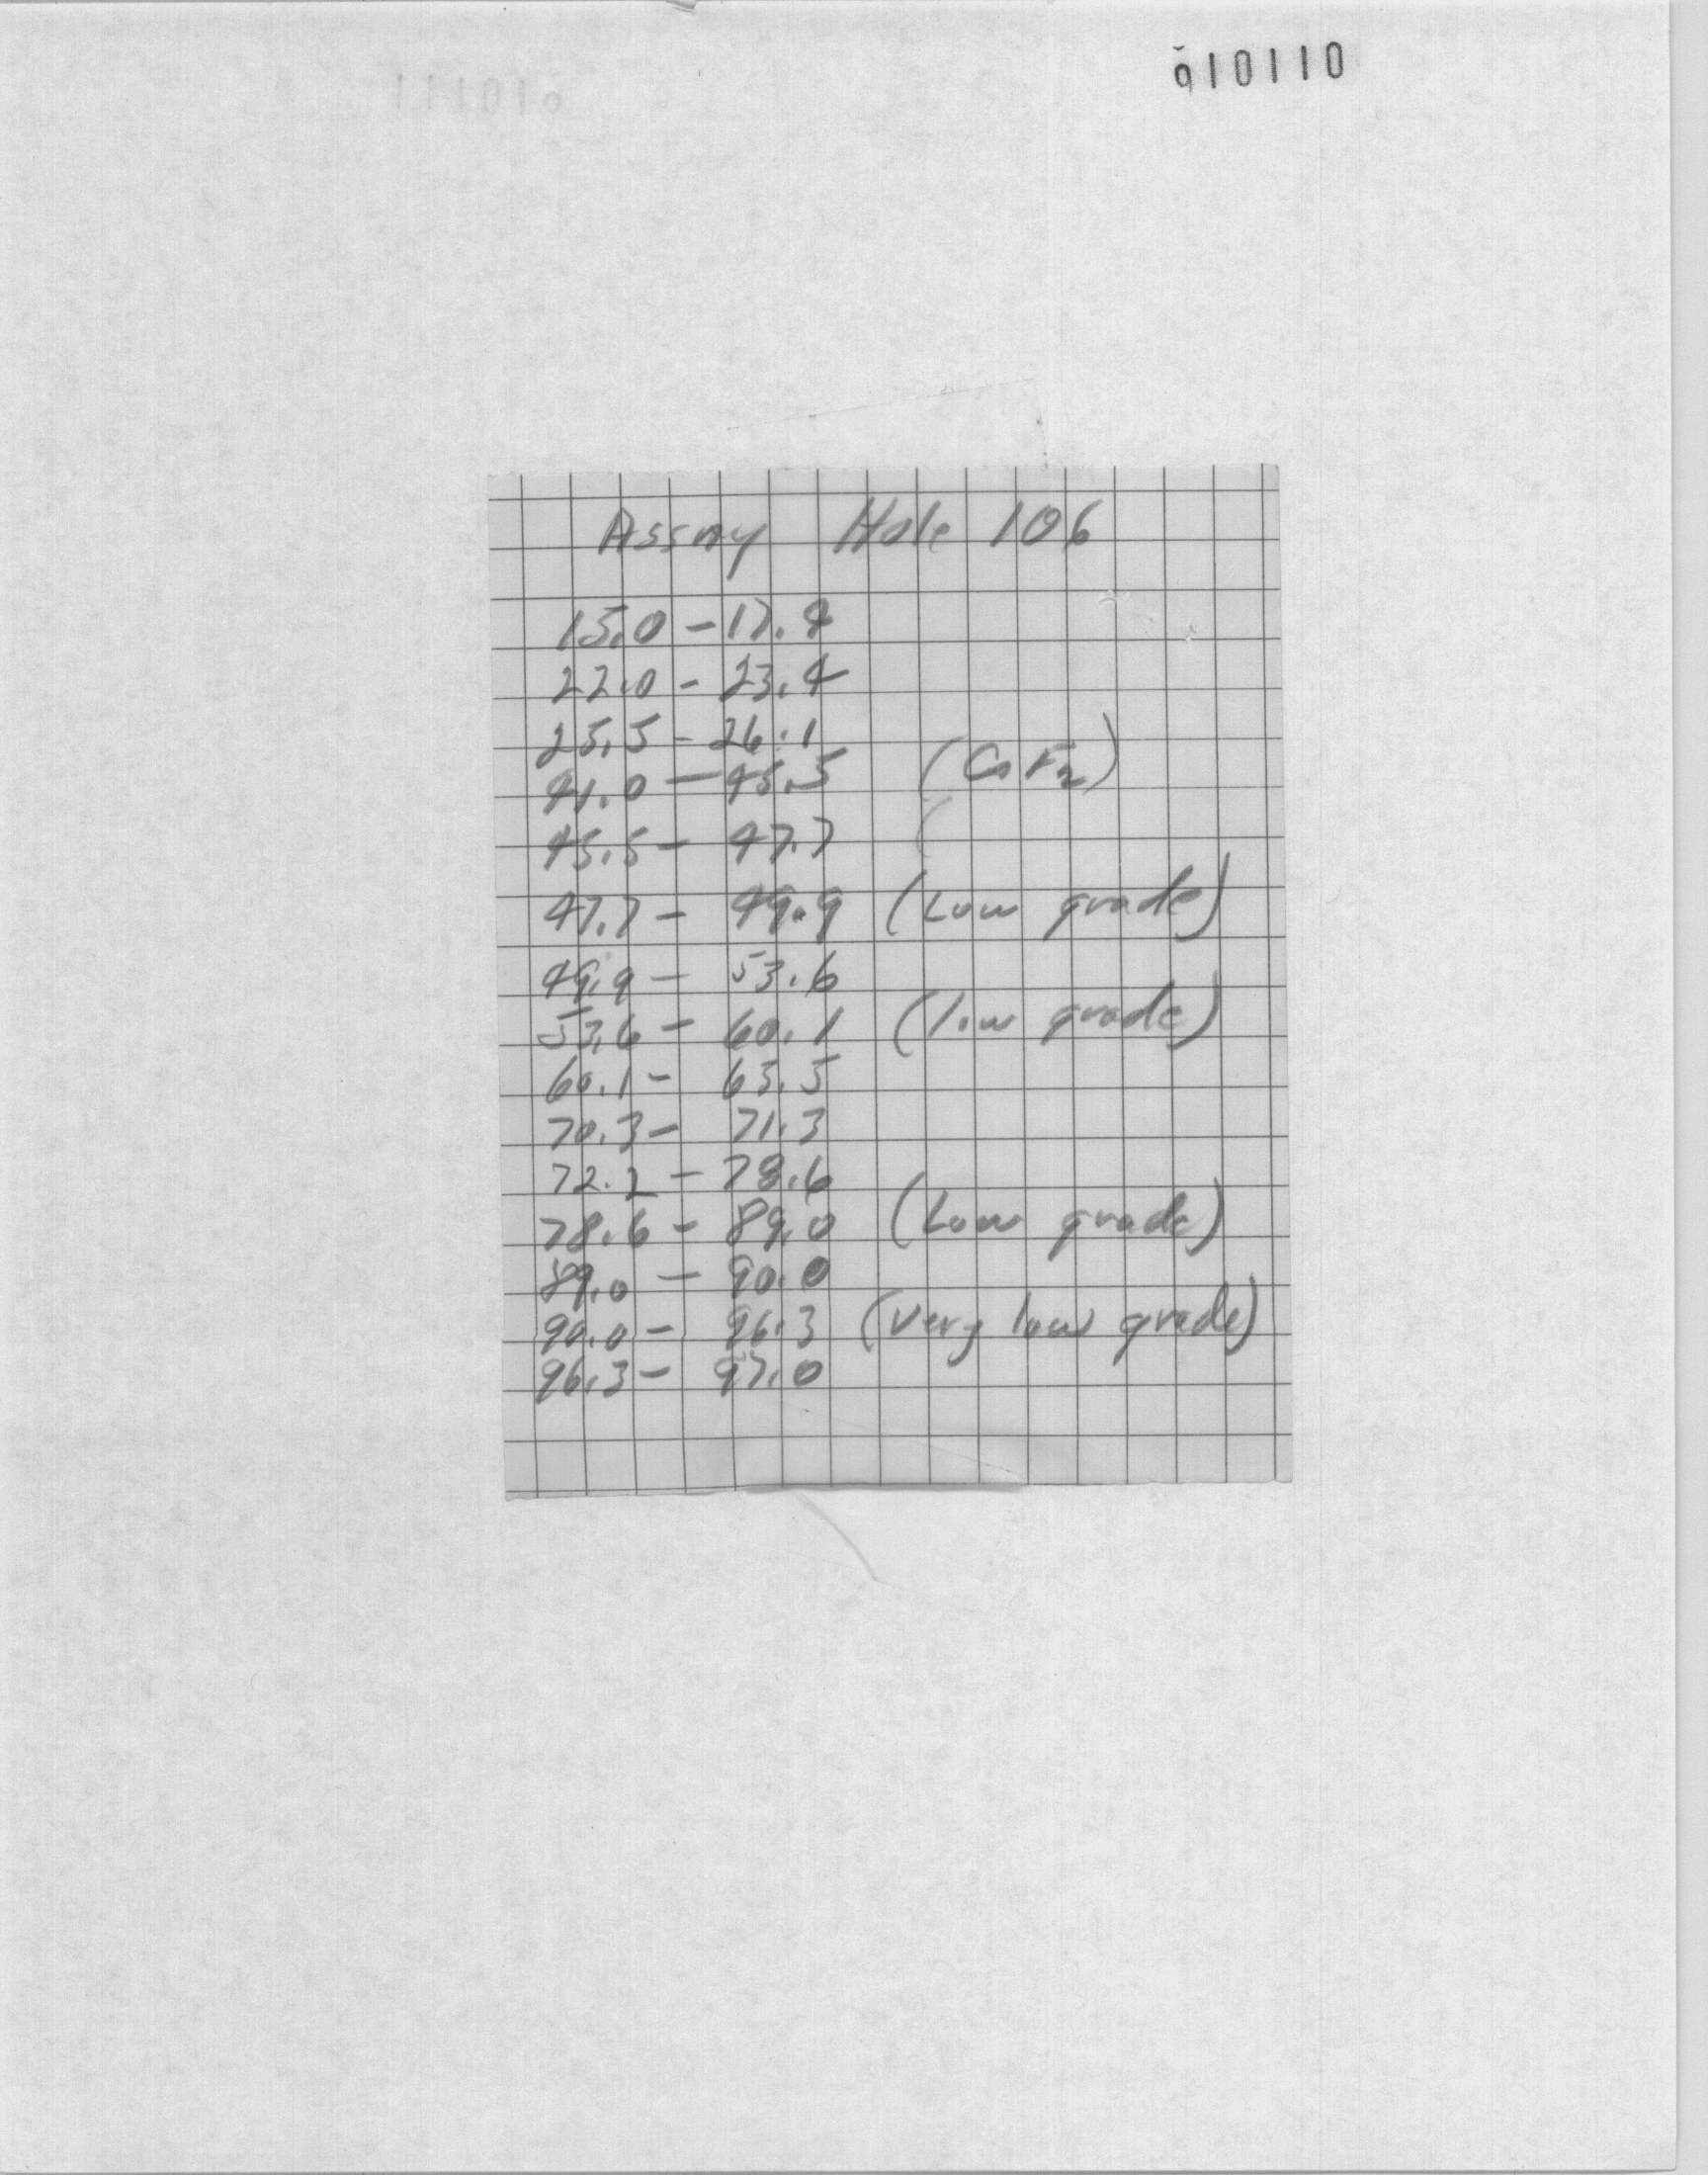 010110
Assay Hole 106
15.0 - 17.4
22.0 - 23.4
25.5 - 26.1
41.0 - 45.5 (CaF2)
45.5 - 47.7 (
47.7 - 49.9 (Low grade)
49.9 - 53.6
53.6 - 60.1 (low grade)
60.1 - 63.5
70.3 - 71.3
72.2 - 78.6
78.6 - 89.0 (Low grade)
89.0 - 90.0
90.0 - 96.3 (very low grade)
96.3 - 97.0